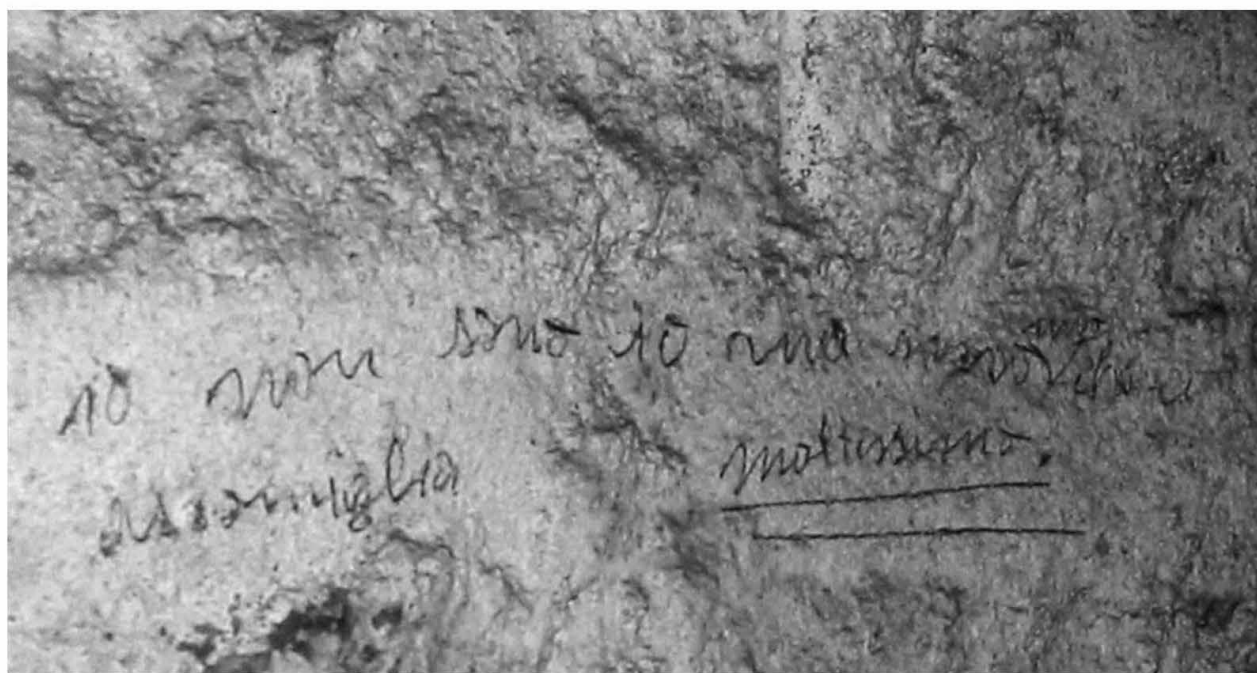 io non sono io ma
assomiglia moltissimo.